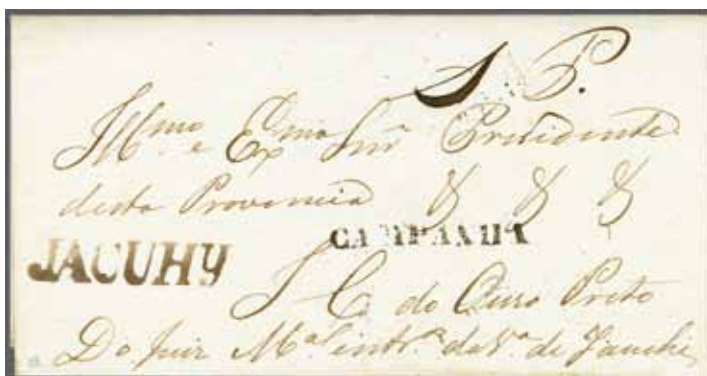 S. P.
Illmo. e Exmo Snr. Presidente
desta Provincia & & &
CAMPANHA
JACUHY
I. C. do Ouro Preto
Do Juiz Mal. intr.º da Vª de Jacuhi